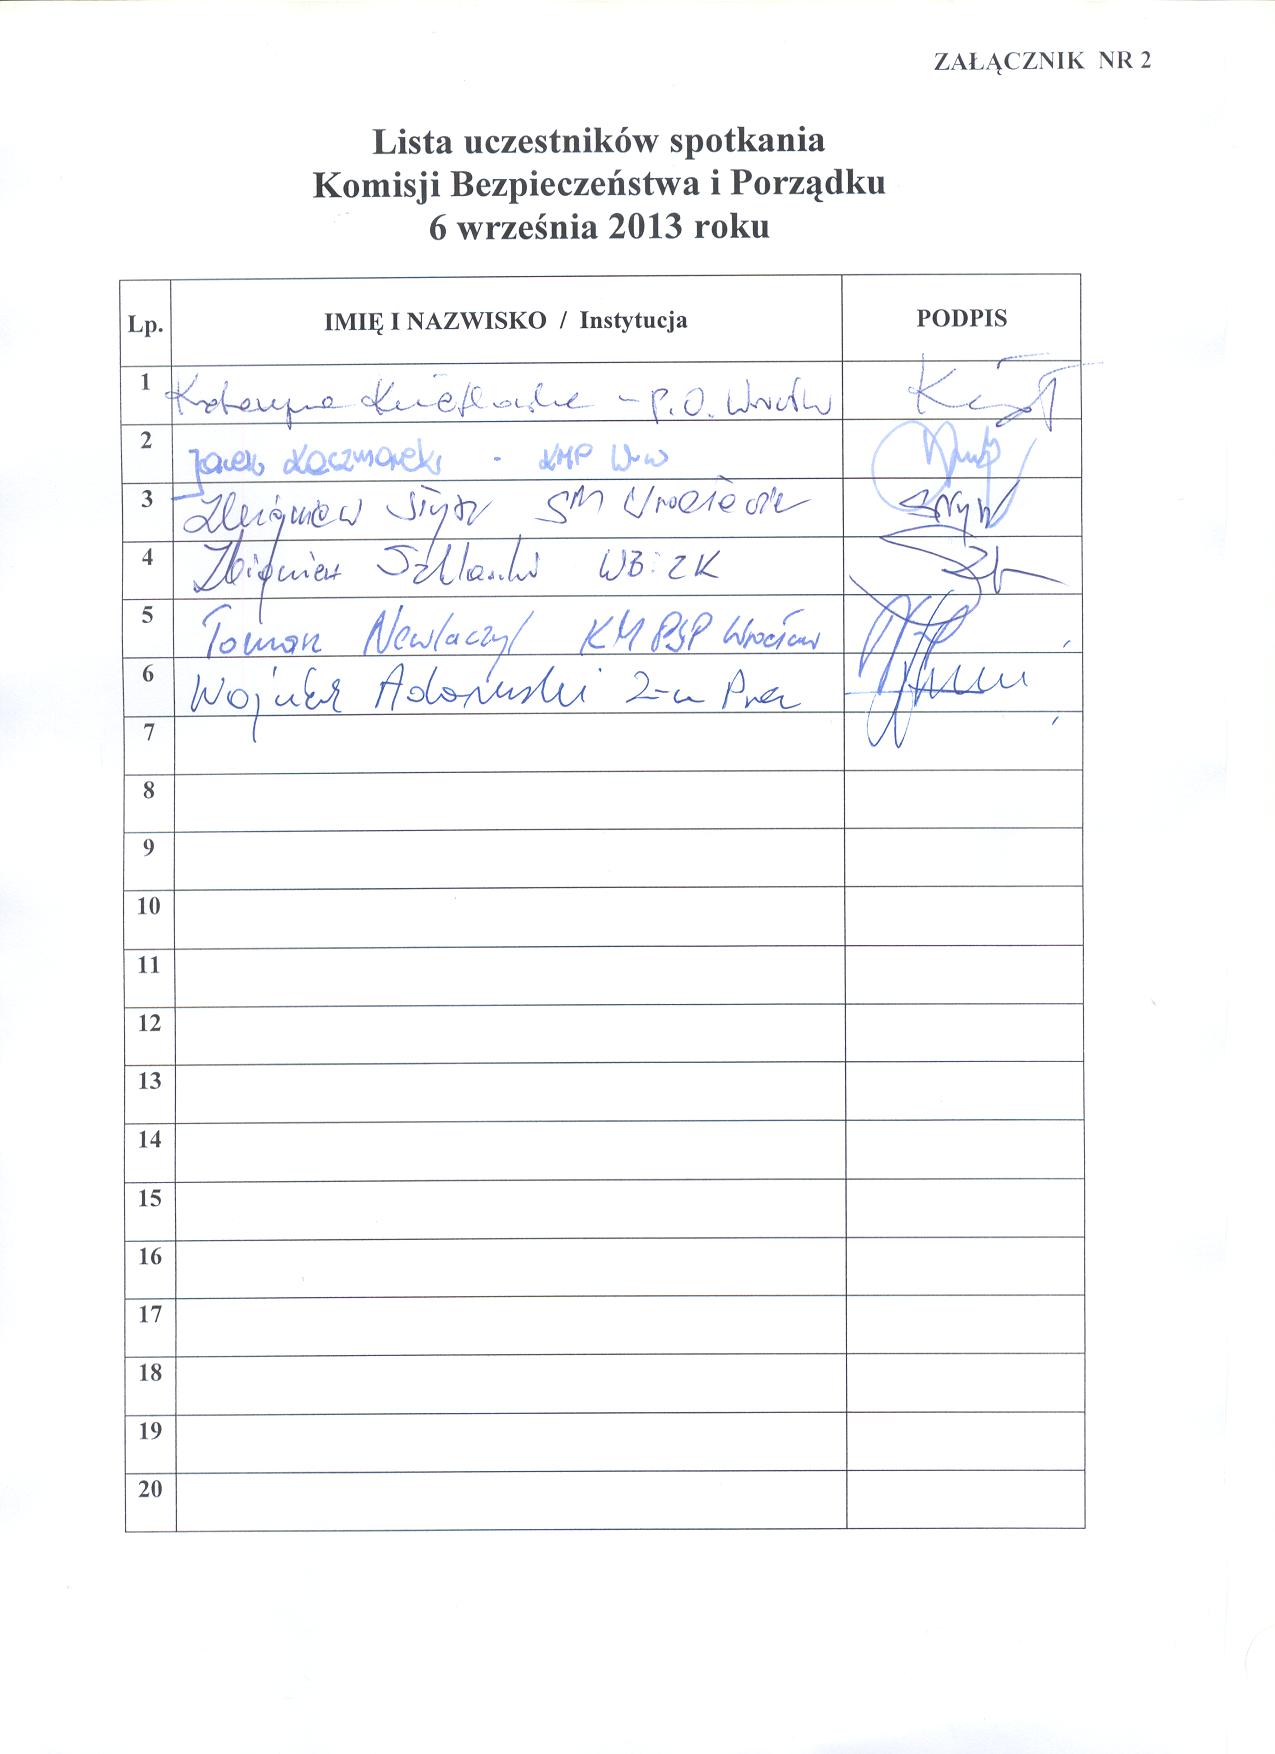 ZAŁĄCZNIK NR 2
Lista uczestników spotkania
Komisji Bezpieczeństwa i Porządku
6 września 2013 roku
Lp. IMIĘ I NAZWISKO / Instytucja PODPIS
1 Katarzyna - P.O.
2 Jacek Kaczmarek - KMP Wr-w
3 Zbigniew SM Wrocław
4 Zbigniew WBiZK
5 Tomasz KM PSP Wrocław
6 Wojciech Adamski
7
8
9
10
11
12
13
14
15
16
17
18
19
20